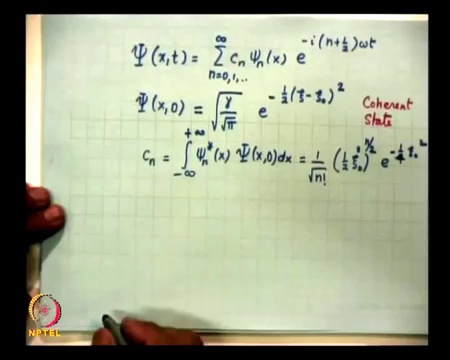 Ψ(x,t) = Σ_{n=0,1,..}^{∞} c_n ψ_n(x) e^{-i(n+½)ωt}
Ψ(x,0) = √(γ/√π) e^{-½(ξ-ξ₀)²}
Coherent
State
c_n = ∫_{-∞}^{+∞} ψ_n*(x) Ψ(x,0)dx = 1/√n! (½ξ₀²)^{n/2} e^{-¼ξ₀²}
NPTEL